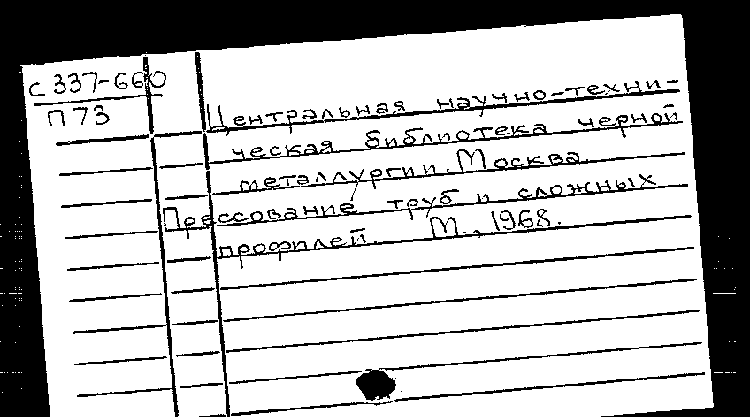 с 337-660
П 73
Центральная научно-техни-
ческая библиотека черной
металлургии. Москва.
Прессование труб и сложных
профилей. М., 1968.